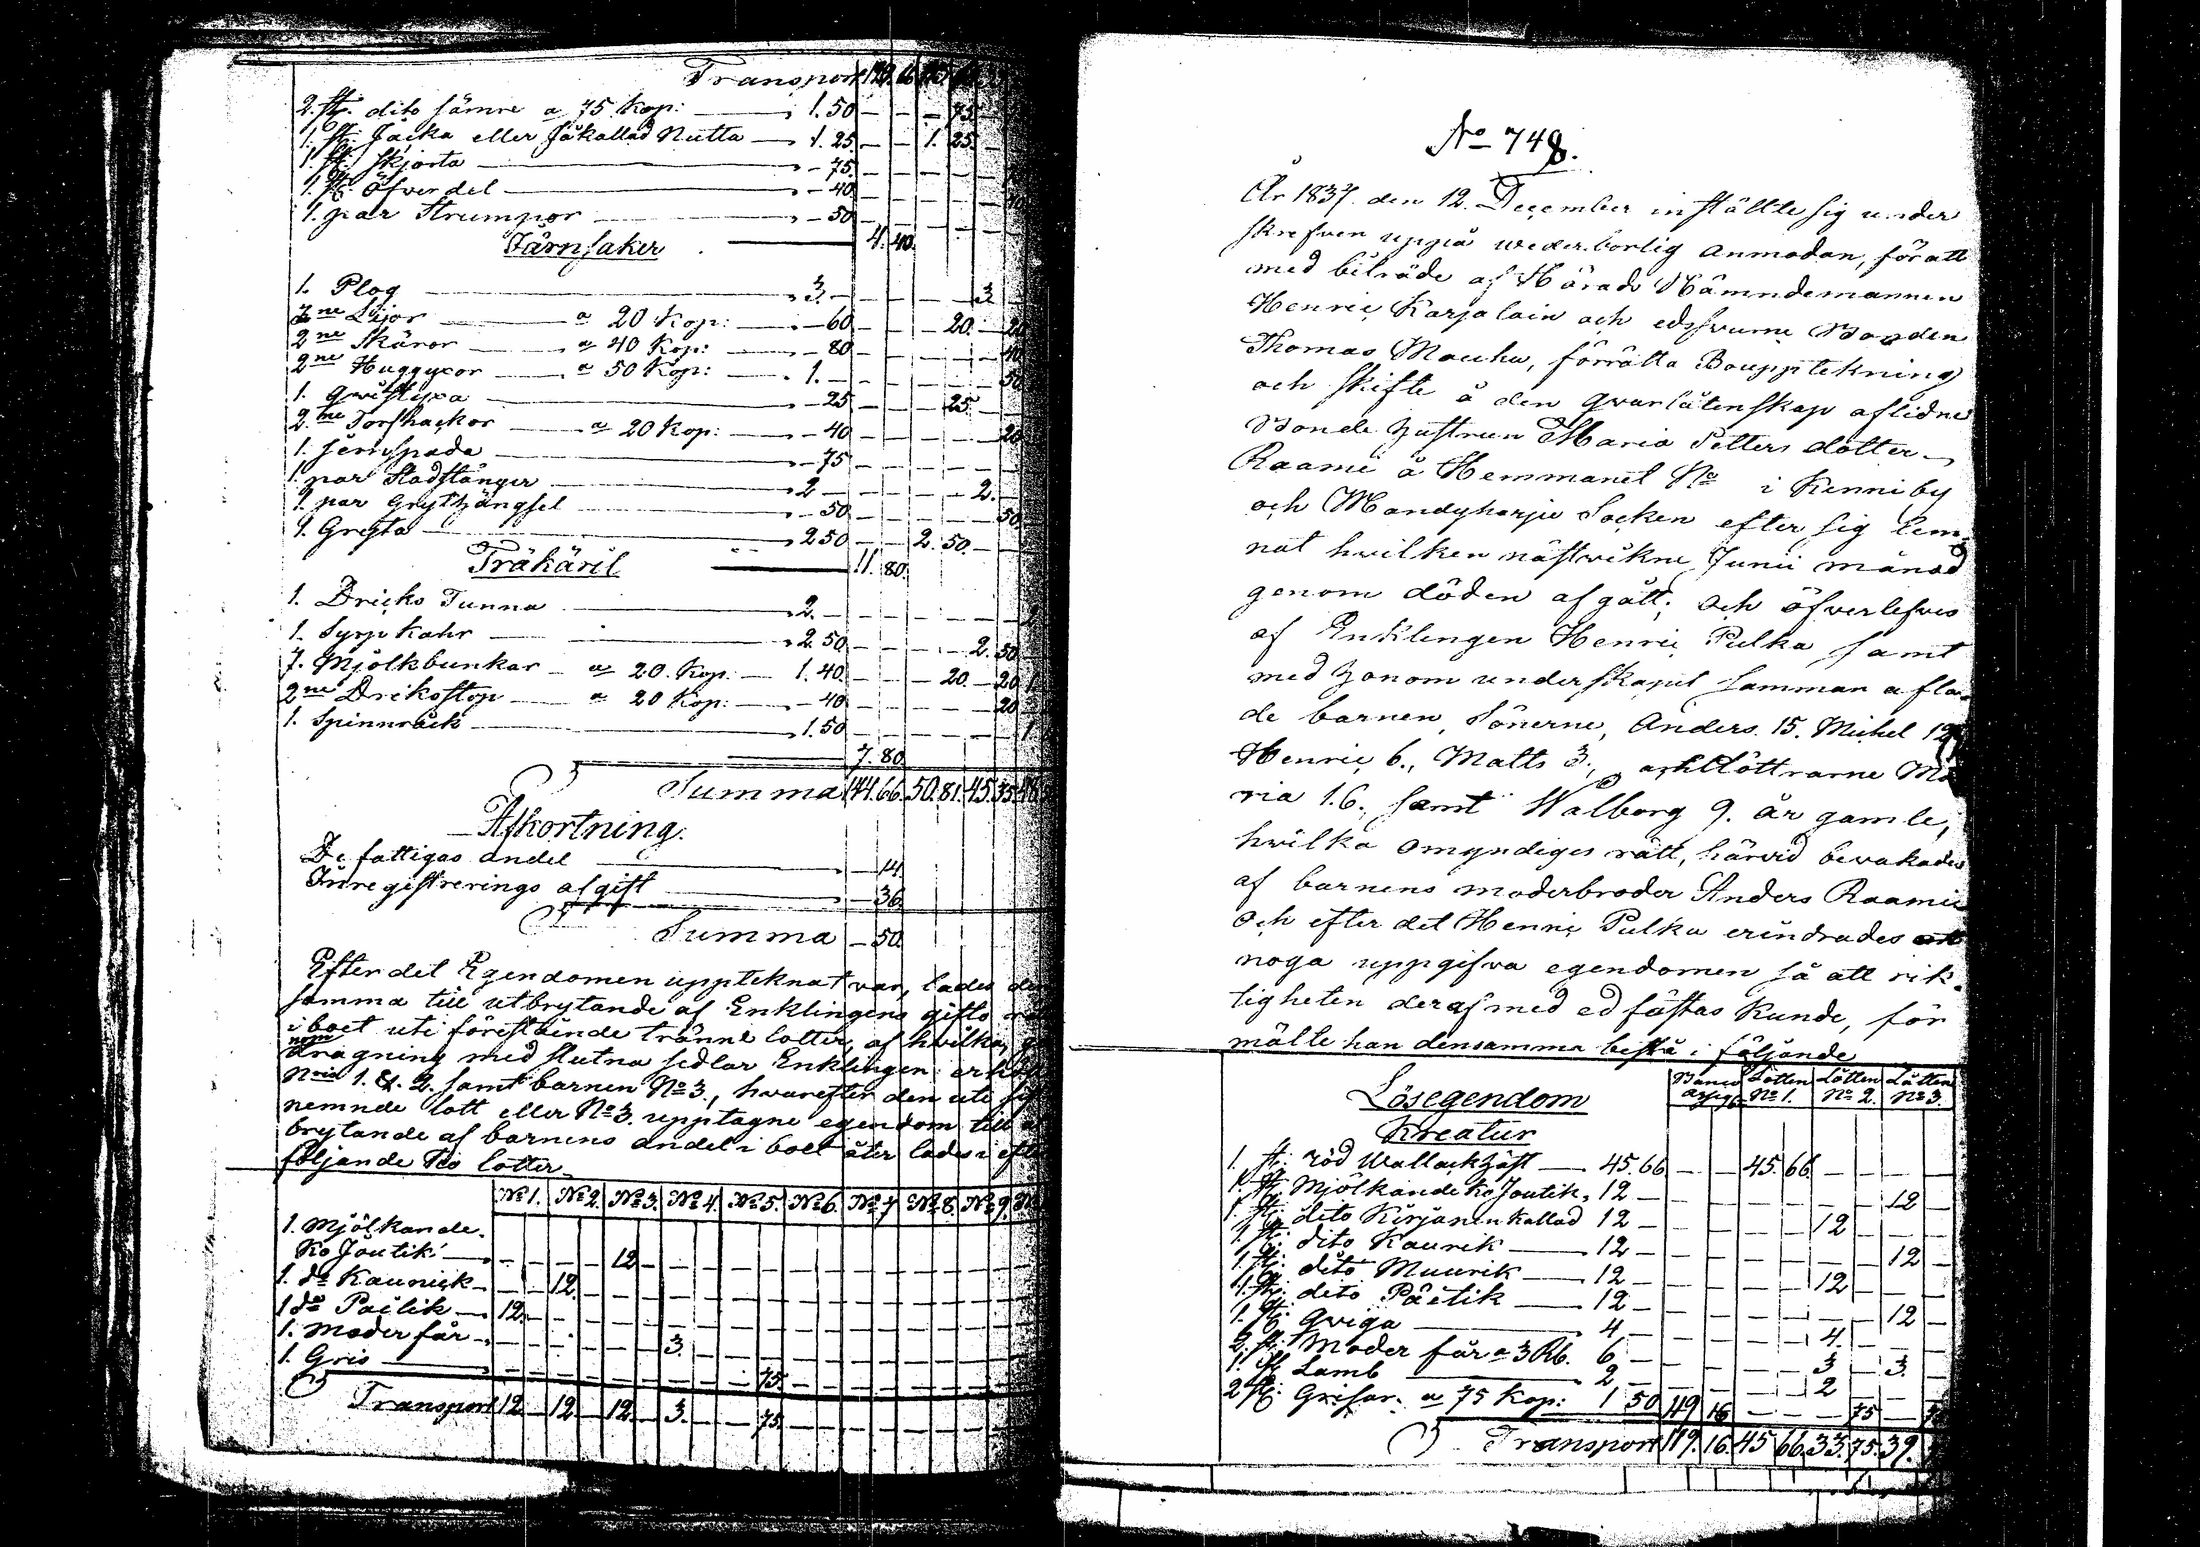 Transport 129.66
2. st. dito sämre a 75 Kop: 1.50 — — — 75
1. st. Jacka eller såkallad Nutta 1.25 — — 1.25
1. st. Skjorta — 75
1. st. Öfverdel — 40
1. par Strumpor — 50
4.40.
Järnsaker
1. Plog 3. — 3
3ne Lijor a 20 Kop: — 60 — 20 — 20
2ne Skäror a 40 Kop: — 80 — 40
2ne Huggyxor a 50 Kop: 1. — 50
1. Qwistyxa — 25 — 25
2ne Torfhackor a 20 Kop: — 40 — 20
1. Jernspade — 75
1. par Stadstänger 2 — 2.
1. par Grythängsel — 50 — 50
1. Gryta 2 50 — 2.50
11.80
Träkäril
1. Dricks Tunna 2. — 2
1. Syrp kahr 2.50 — 2.50
7. Mjölkbunkar a 20 Kop: 1.40 — 20 — 20
2ne Drikstop a 20 Kop: — 40 — 20
1. Spinnråck 1.50 — 1
7.80
Summa 144.66. 50.81. 45.35
Afkortning.
De fattigas andel — 14
Inregistrerings afgift — 36
Summa — 50
Efter det Egendomen uppteknat var, lades den
samma till utbrytande af Enklingens gifto
i boet uti föreståënde tränne lotter, af hvilka, ge
nom
dragning med slutna sedlar Enklingen erhöll
Nris 1. & 2. samt barnen No 3., hvarefter den uti
nemnde lott eller No 3. upptagne egendom till
brytande af barnens andel i boet åter lades i efter
följande Tio lotter
No 1. No 2. No 3. No 4. No 5. No 6. No 7 No 8. No 9.
1. Mjölkande
Ko Joutik 12
1. do Kaunick 12.
1 do Pailik 12
1. Moder får 3.
1. Gris 75
Transport 12 — 12 — 12 — 3. — 75
No 748.
År 1837. den 12. December inställte sig under
skrefven uppå wederbörlig anmodan, för att
med biträde af Härads Nämndemannen
Henric Karjalain och edsvurne Bonden
Thomas Mouhu, förrätta Bouppteknin͏g
och skifte å den qvarlåtenskap aflidne
Bonde hustrun Maria Petters dotter
Raami å Hemmanet No i Kenniby
och Mandyharju Socken efter sig lem-
nat hvilken nästvikne Junii månad
genom döden afgått; och öfverlefves
af Enklingen Henric Pulka samt
med honom under äktenskapet samman afla-
de barnen, Sönerne, Anders 15. Michel 12
Henric 6., Matts 3., och döttrarne Ma
ria 16. samt Walborg 9. år gamle,
hvilka omyndiges rätt, härvid bevakades
af barnens moderbroder Anders Raamie
Och efter det Henric Pulka erindrades att
noga uppgifva egendomen så att rik-
tigheten deraf med ed fästas kunde, för
mälte han densamma bestå i följande
Lösegendom
Banco Assign: Lotten No 1. Lotten No 2. Lotten No 3.
Kreatur
1. st. röd Wallack häst 45.66 — — 45.66
1. st. Mjölkande Ko Joutik, 12 — 12
1. st. dito Kirjanen kallad 12 — 12
1. st. dito Kaunik 12 — 12
1. st. dito Muurik 12 — 12
1. st. dito Päëtik 12 — 12
1. st. Qviga 4 — 4.
2. st. Moder får a 3 Rb. 6 — 3 — 3.
1. st. Lamb 2 — 2
2 st. Grisar a 75 Kop: 1 50 119 16 — 75
Transport 119.16. 45 66. 33.75. 39.